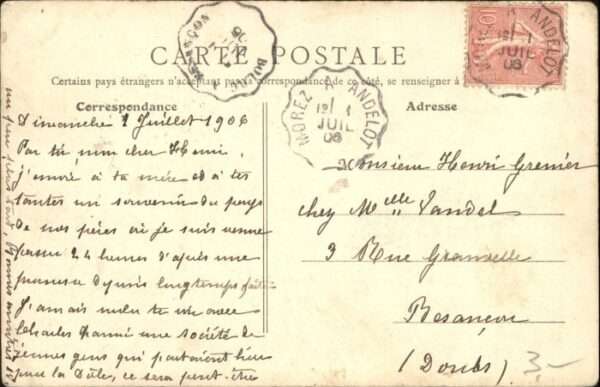 CARTE POSTALE
Certains pays étrangers n'acceptant pas la correspondance de ce côté, se renseigner à la
Correspondance
Adresse
Dimanche 1 Juillet 1906
Par toi, mon cher Henri,
j'envoie à ta mère et à tes
tantes un souvenir du pays
de nos pères où je suis venue
passer 24 heures d'après une
promesse depuis longtemps faite
J'aurais voulu te voir avec
Charles parmi une société de
jeunes gens qui partaient hier
pour la Dôle, ce sera peut-être
un peu plus tard,
Monsieur Henri Grenier
chez Melle Vandel
3 Rue Granvelle
Besançon
(Doubs)
3-
MOREZ A ANDELOT
1
JUIL
06
MOREZ A ANDELOT
1
JUIL
06
BESANÇON
10